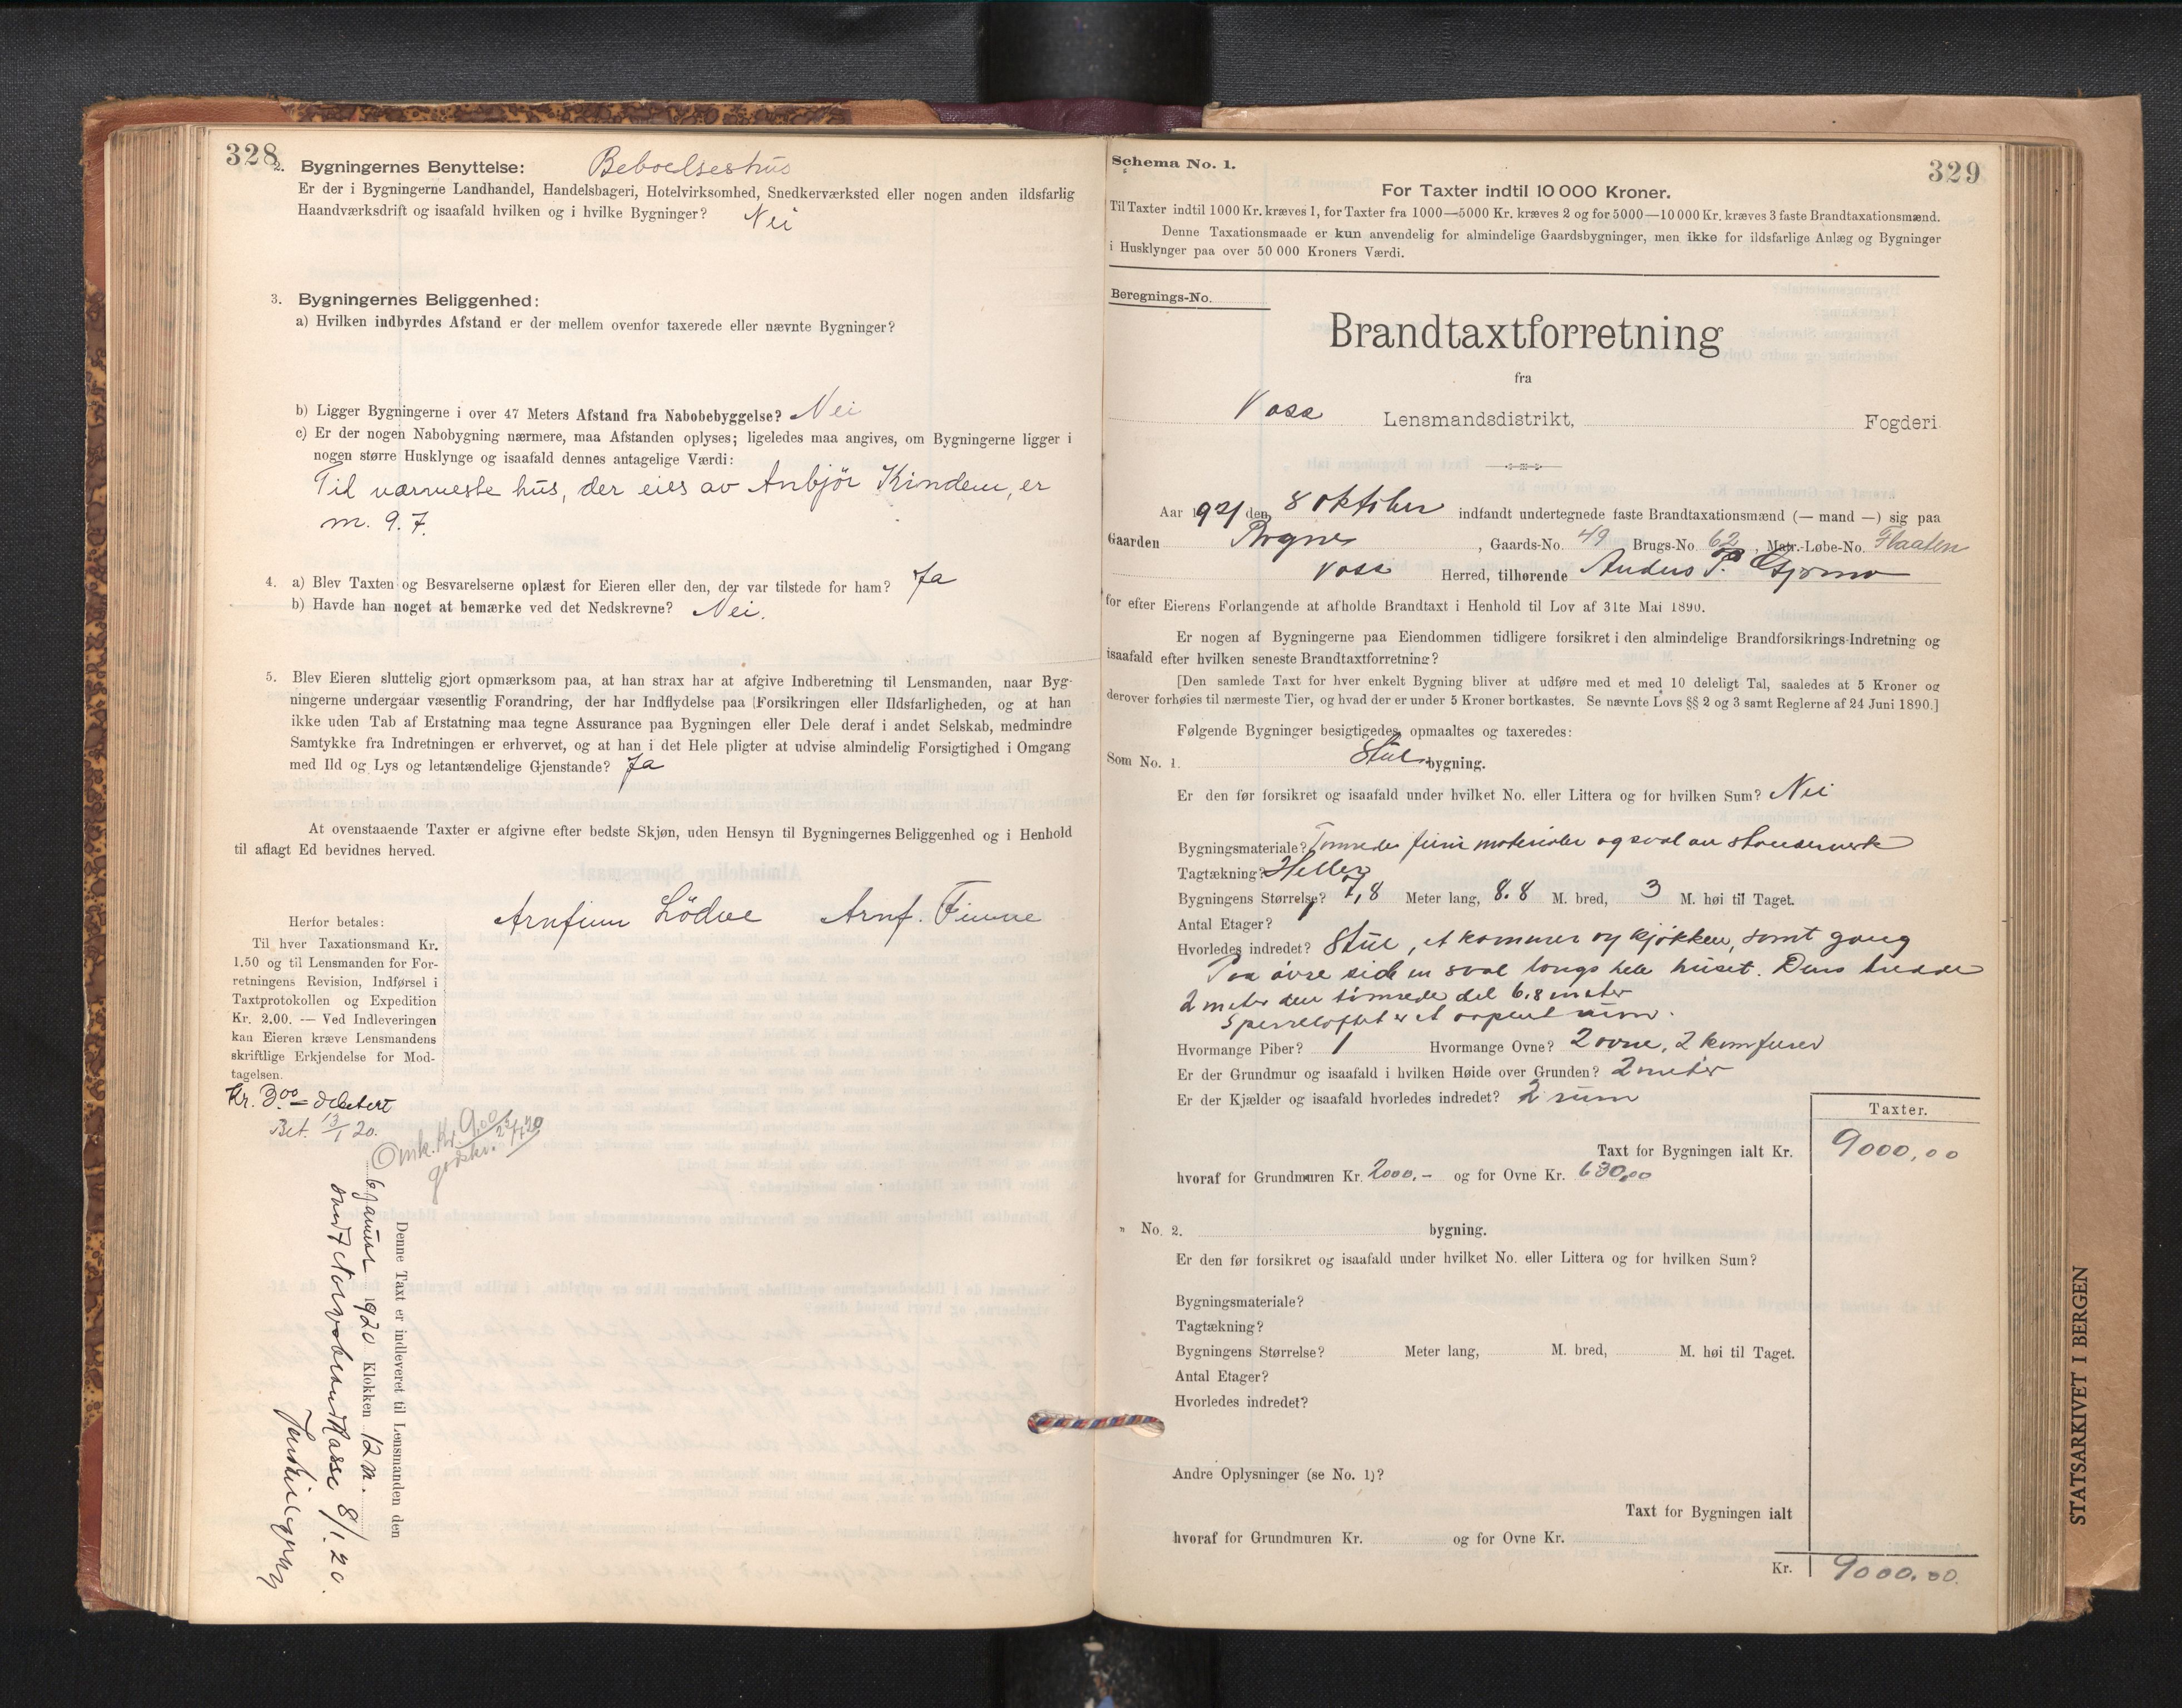 328
2. Bygningernes Benyttelse: Beboelseshus
Er der i Bygningerne Landhandel, Handelsbageri, Hotelvirksomhed, Snedkerværksted eller nogen anden ildsfarlig
Haandværksdrift og isaafald hvilken og i hvilke Bygninger? Nei
3. Bygningernes Beliggenhed:
a) Hvilken indbyrdes Afstand er der mellem ovenfor taxerede eller nævnte Bygninger?
b) Ligger Bygningerne i over 47 Meters Afstand fra Nabobebyggelse? Nei
c) Er der nogen Nabobygning nærmere, maa Afstanden oplyses; ligeledes maa angives, om Bygningerne ligger i
nogen større Husklynge og isaafald dennes antagelige Værdi:
Til nærmeste hus, der eies av Anbjör Kindem, er
m. 9.7.
4. a) Blev Taxten og Besvarelserne oplæst for Eieren eller den, der var tilstede for ham? Ja
b) Havde han noget at bemærke ved det Nedskrevne? Nei.
5. Blev Eieren sluttelig gjort opmærksom paa, at han strax har at afgive Indberetning til Lensmanden, naar Byg-
ningerne undergaar væsentlig Forandring, der har Indflydelse paa Forsikringen eller Ildsfarligheden, og at han
ikke uden Tab af Erstatning maa tegne Assurance paa Bygningen eller Dele deraf i andet Selskab, medmindre
Samtykke fra Indretningen er erhvervet, og at han i det Hele pligter at udvise almindelig Forsigtighed i Omgang
med Ild og Lys og letantændelige Gjenstande? Ja
At ovenstaaende Taxter er afgivne efter bedste Skjøn, uden Hensyn til Bygningernes Beliggenhed og i Henhold
til aflagt Ed bevidnes herved.
Arnfinn Lödve Arnf. Finne
Herfor betales:
Til hver Taxationsmand Kr.
1.50 og til Lensmanden for For-
retningens Revision, Indførsel i
Taxtprotokollen og Expedition
Kr. 2.00. — Ved Indleveringen
kan Eieren kræve Lensmandens
skriftlige Erkjendelse for Mod-
tagelsen.
Kr. 3.00 debitert
Bet. 13/1 20.
Omk. Kr. 9.00
godskr.
Denne Taxt er indleveret til Lensmanden den
6 januar 1920 Klokken 12 m.
8/1.20.
Schema No. 1.
329
For Taxter indtil 10 000 Kroner.
Til Taxter indtil 1000 Kr. kræves 1, for Taxter fra 1000—5000 Kr. kræves 2 og for 5000—10 000 Kr. kræves 3 faste Brandtaxationsmænd.
Denne Taxationsmaade er kun anvendelig for almindelige Gaardsbygninger, men ikke for ildsfarlige Anlæg og Bygninger
i Husklynger paa over 50 000 Kroners Værdi.
Beregnings-No.
Brandtaxtforretning
fra
Voss Lensmandsdistrikt, Fogderi
Aar 1921 den 8 oktober indfandt undertegnede faste Brandtaxationsmænd (— mand —) sig paa
Gaarden Rognes, Gaards-No. 49 Brugs-No. 62, Matr.-Løbe-No. Flaaten
Voss Herred, tilhørende Anders P. Gjerme
for efter Eierens Forlangende at afholde Brandtaxt i Henhold til Lov af 31te Mai 1890.
Er nogen af Bygningerne paa Eiendommen tidligere forsikret i den almindelige Brandforsikrings-Indretning og
isaafald efter hvilken seneste Brandtaxtforretning?
[Den samlede Taxt for hver enkelt Bygning bliver at udføre med et med 10 deleligt Tal, saaledes at 5 Kroner og
derover forhøies til nærmeste Tier, og hvad der er under 5 Kroner bortkastes. Se nævnte Lovs §§ 2 og 3 samt Reglerne af 24 Juni 1890.]
Følgende Bygninger besigtigedes, opmaaltes og taxeredes:
Som No. 1. Stue bygning.
Er den før forsikret og isaafald under hvilket No. eller Littera og for hvilken Sum? Nei
Bygningsmateriale? Tømrede furu materialer og sval av standerverk
Tagtækning? Heller
Bygningens Størrelse? 7,8 Meter lang, 8.8 M. bred, 3 M. høi til Taget.
Antal Etager? 1
Hvorledes indredet? Stue, et kammer og kjøkken, samt gang
Paa øvre side en sval langs hele huset. Dens bredde
2 meter den tømrede del 6.8 meter
Sperreloftet er et aapent rum.
Hvormange Piber? 1 Hvormange Ovne? 2 ovne, 2 komfurer
Er der Grundmur og isaafald i hvilken Høide over Grunden? 2 meter
Er der Kjælder og isaafald hvorledes indredet? 2 rum
Taxter.
Taxt for Bygningen ialt Kr. 9000,00
hvoraf for Grundmuren Kr. 2000.- og for Ovne Kr. 630,00
" No. 2. bygning.
Er den før forsikret og isaafald under hvilket No. eller Littera og for hvilken Sum?
Bygningsmateriale?
Tagtækning?
Bygningens Størrelse? Meter lang, M. bred, M. høi til Taget.
Antal Etager?
Hvorledes indredet?
Andre Oplysninger (se No. 1)?
Taxt for Bygningen ialt
hvoraf for Grundmuren Kr. og for Ovne Kr.
Kr. 9000.00.
STATSARKIVET I BERGEN